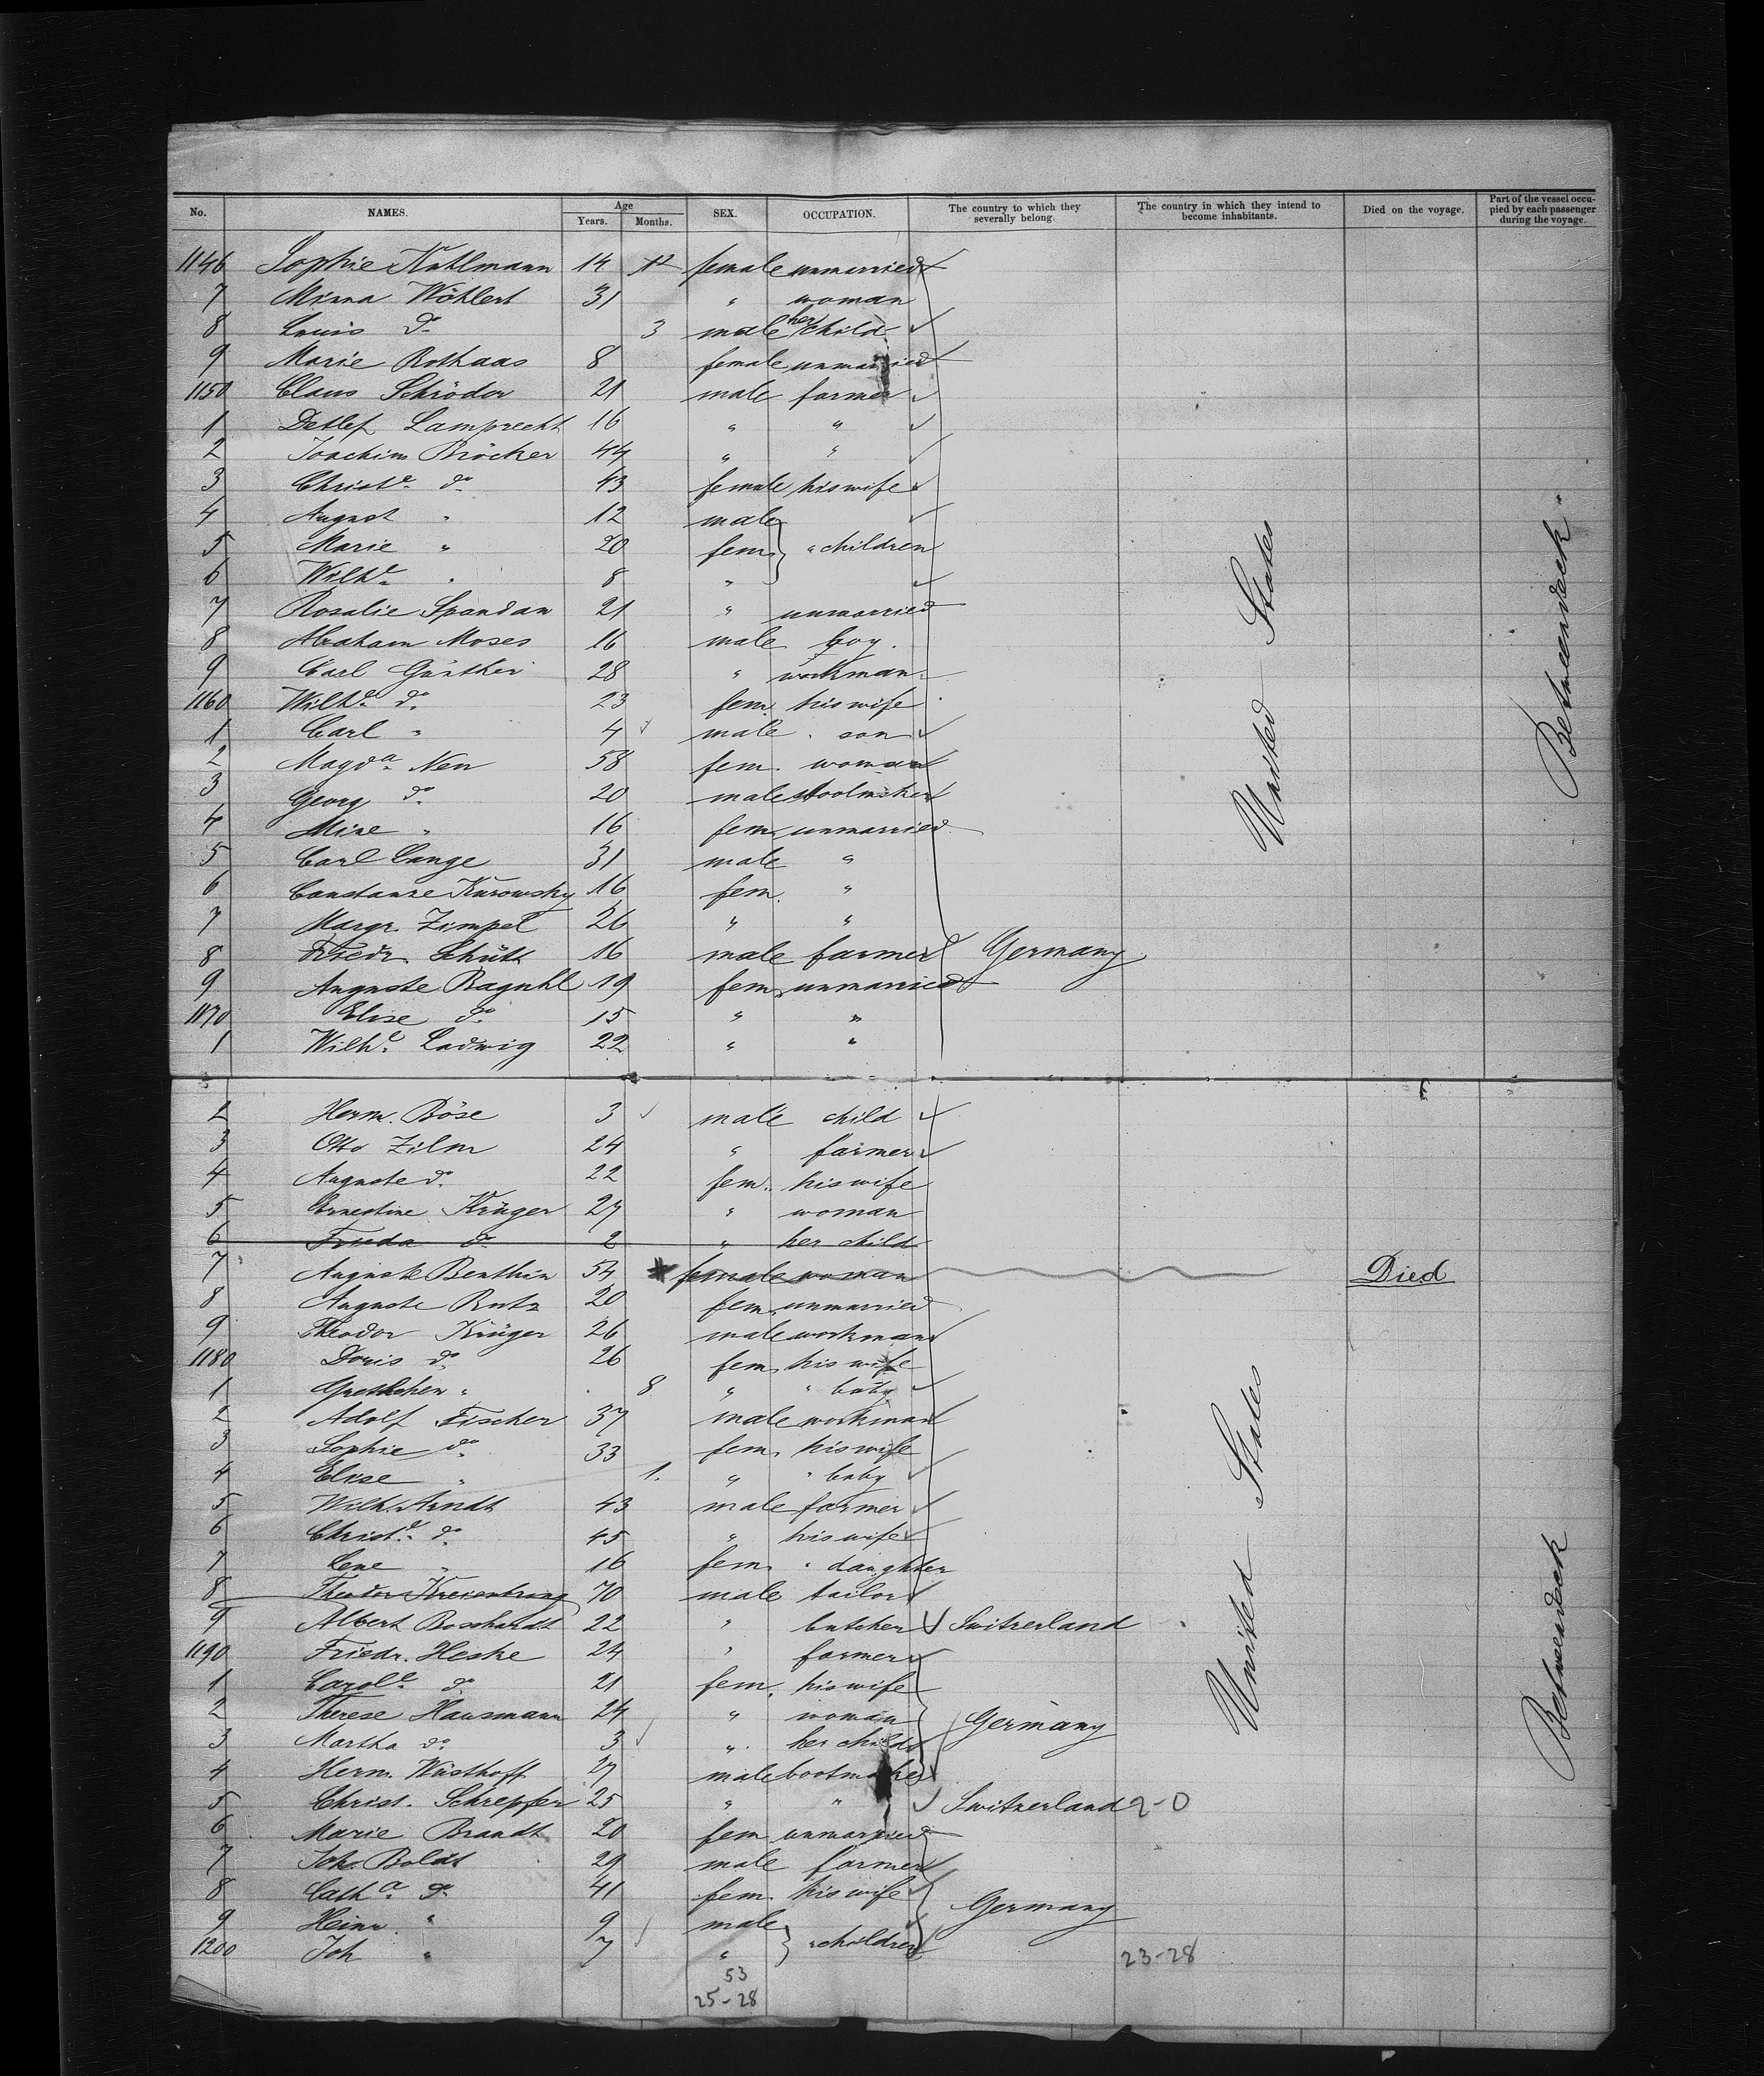 No. NAMES. Age Years. Months. SEX. OCCUPATION. The country to which they severally belong. The country in which they intend to become inhabitants. Died on the voyage. Part of the vessel occupied by each passenger during the voyage.
1146 Sophie Kuhlmann 14 female unmarried
7 Minna Wöhlert 31 " woman
8 Louis do 3 male her child
9 Marie Rothaas 8 female unmarried
1150 Claus Schröder 21 male farmer
1 Detlef Lamprecht 16 " "
2 Joachim Bröcker 44 " "
3 Christe do 43 female his wife
4 August " 12 male
5 Marie " 20 fem. " children
6 Wilhe " 8 "
7 Rosalie Spandau 21 " unmarried
8 Abraham Moses 16 male boy.
9 Carl Günther 28 " workman
1160 Wilhe do 23 fem. his wife
1 Carl " 4 male " son
2 Magda Neu 58 fem. woman
3 Georg do 20 male
4 Mine " 16 fem. unmarried
5 Carl Lange 31 male "
6 Constanze Kurowsky 16 fem. "
7 Margr. Zimpel 26 " "
8 Friedr. Schütt 16 male farmer Germany
9 Auguste Baguhl 19 fem. unmarried
1170 Elise do 15 " "
1 Wilhe Ladwig 22 " "
United States
Betweendeck
2 Herm. Böse 3 male child
3 Otto Zilm 24 " farmer
4 Auguste do 22 fem. his wife
5 Ernestine Krüger 27 " woman
6 Frieda do 2 " her child
7 Auguste Benthin 54 female woman Died
8 Auguste Rutz 20 fem. unmarried
9 Theodor Krüger 26 male workman
1180 Doris do 26 fem. his wife
1 Gretchen " 8 " " baby
2 Adolf Fischer 37 male workman
3 Sophie do 33 fem. his wife
4 Elise " 1. " " baby
5 Wilh. Arndt 43 male farmer
6 Christe do 45 " his wife
7 Lene " 16 fem " daughter
8 Theodor 70 male tailor
9 Albert Bosshardt 22 " butcher Switzerland
1190 Friedr. Heske 24 " farmer
1 Carole do 21 fem. his wife
2 Therese Hausmann 24 " woman Germany
3 Martha do 3 " her child
4 Herm. Wüsthoff 27 male bootmaker
5 Christ. Schrepfer 25 " " Switzerland 2-0
6 Marie Brandt 20 fem unmarried
7 Joh. Boldt 29 male farmer
8 Catha do 41 fem. his wife Germany
9 Heinr. " 9 male
1200 Joh " 7 " " children 23-28
United States
Betweendeck
53
25-28